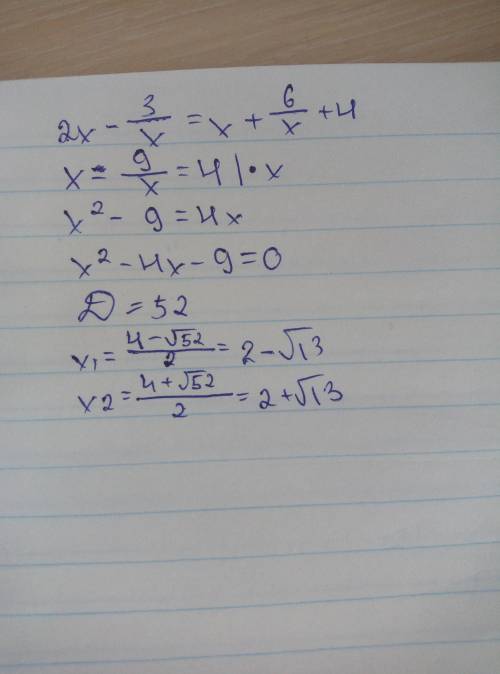 2x - 3/x = x + 6/x + 4
x - 9/x = 4 | · x
x² - 9 = 4x
x² - 4x - 9 = 0
D = 52
x₁ = (4 - √52)/2 = 2 - √13
x2 = (4 + √52)/2 = 2 + √13